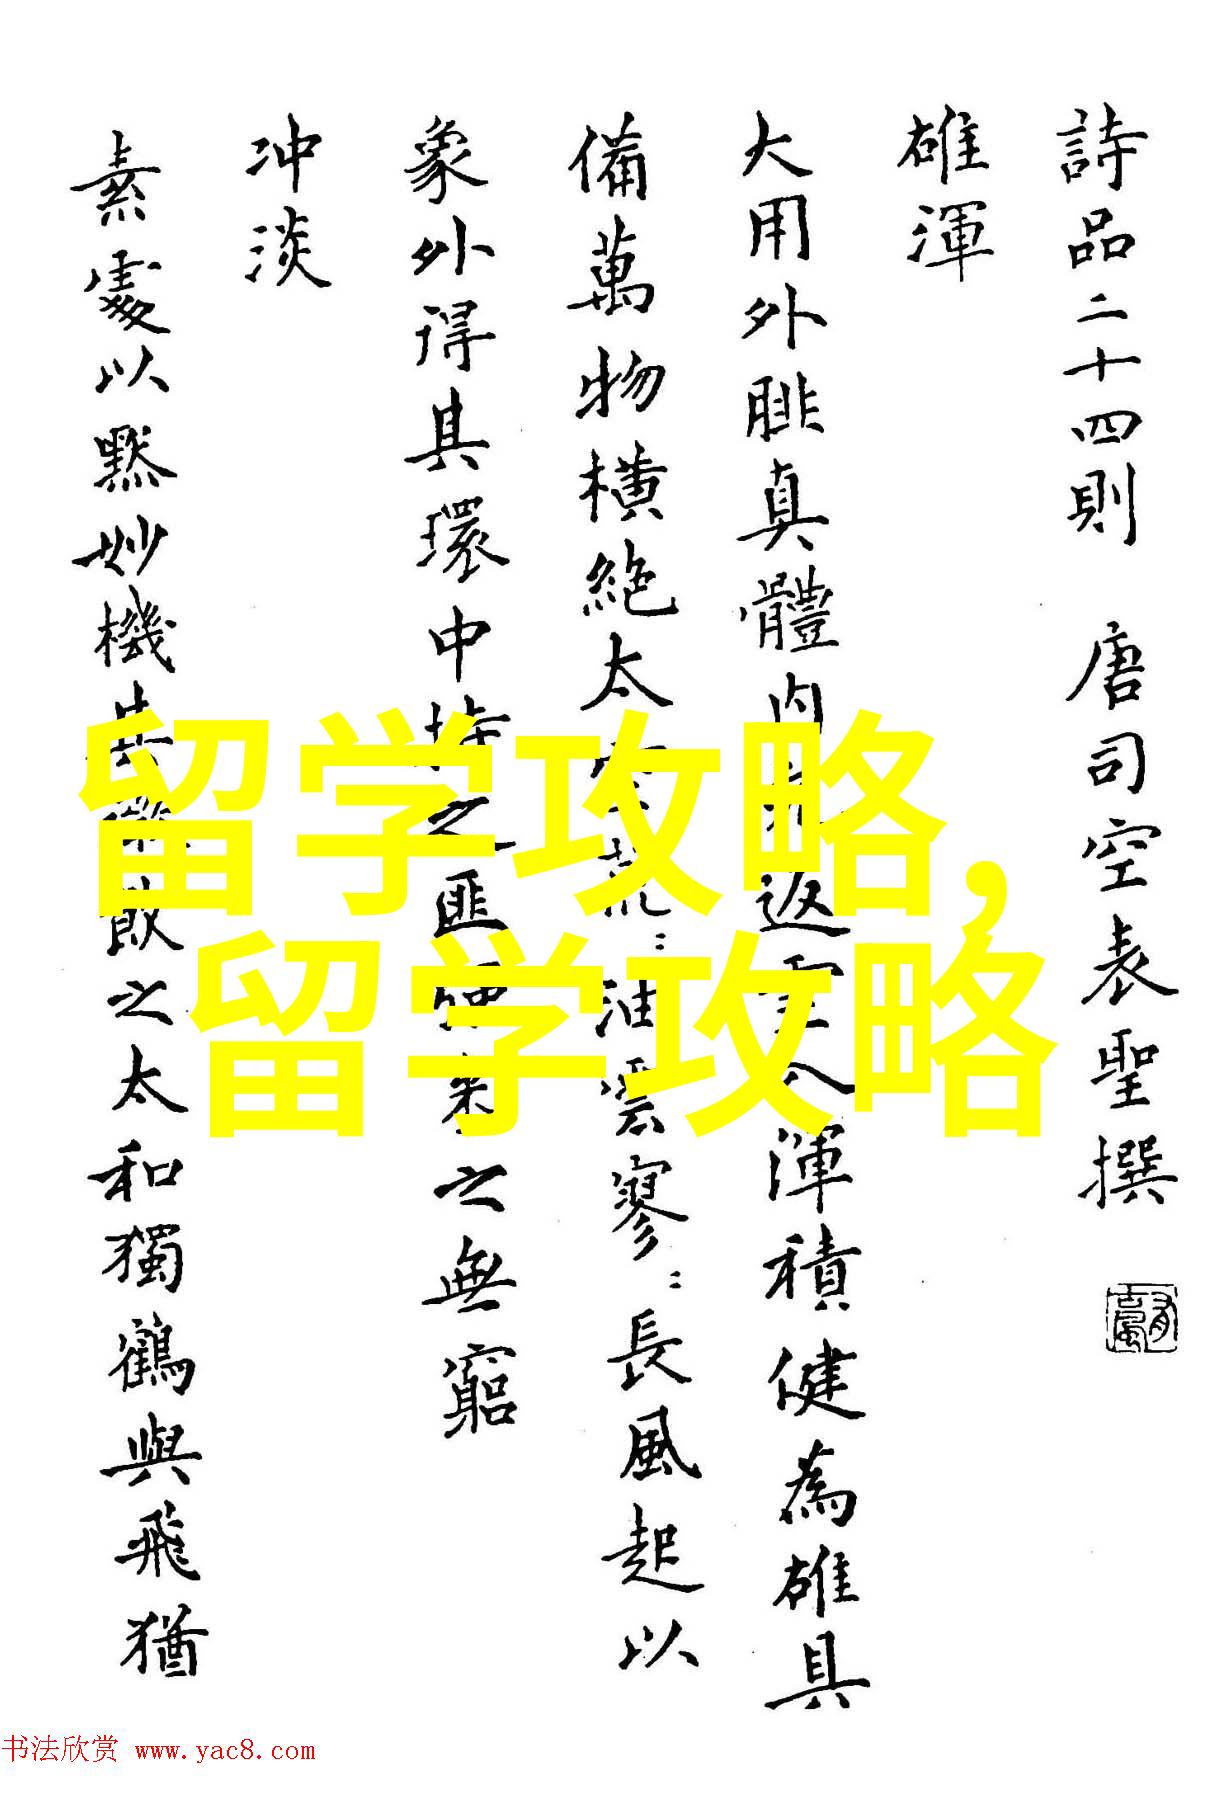 詩品二十四則 唐司空表聖撰
雄渾
大用外腓真體内充返虛入渾積健為雄具
備萬物橫絶太空荒〻油雲寥〻長風超以
象外得其環中持之匪強來之無窮
冲淡
素處以默妙機其微飲之太和獨鶴與飛猶
留学攻略,
留学攻略
书法欣赏 www.yac8.com